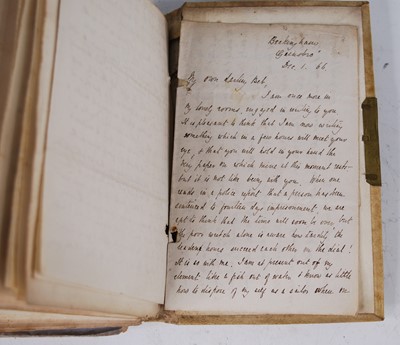 Gainsbro'
Dec 1. 66
My own darling Bob,
I am once more in
my lonely rooms, engaged in writing to you.
It is pleasant to think that I am now writing
something which in a few hours will meet your
eye, & that you will hold in your hand the
very paper on which mine at this moment rests—
but it is not like being with you. When one
reads in a police report that a person has been
sentenced to fourteen days imprisonment, we are
apt to think that the time will soon be over, but
the poor wretch alone is aware how tardily the
leaden hours succeed each other on the dial!
It is so with me; I am at present out of my
element like a fish out of water & know as little
how to dispose of myself as a sailor when on